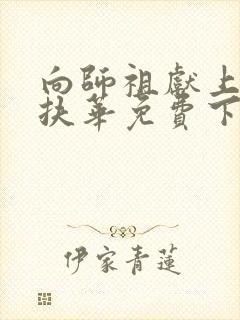 向師祖獻上
扶華免費下
伊家青蓮